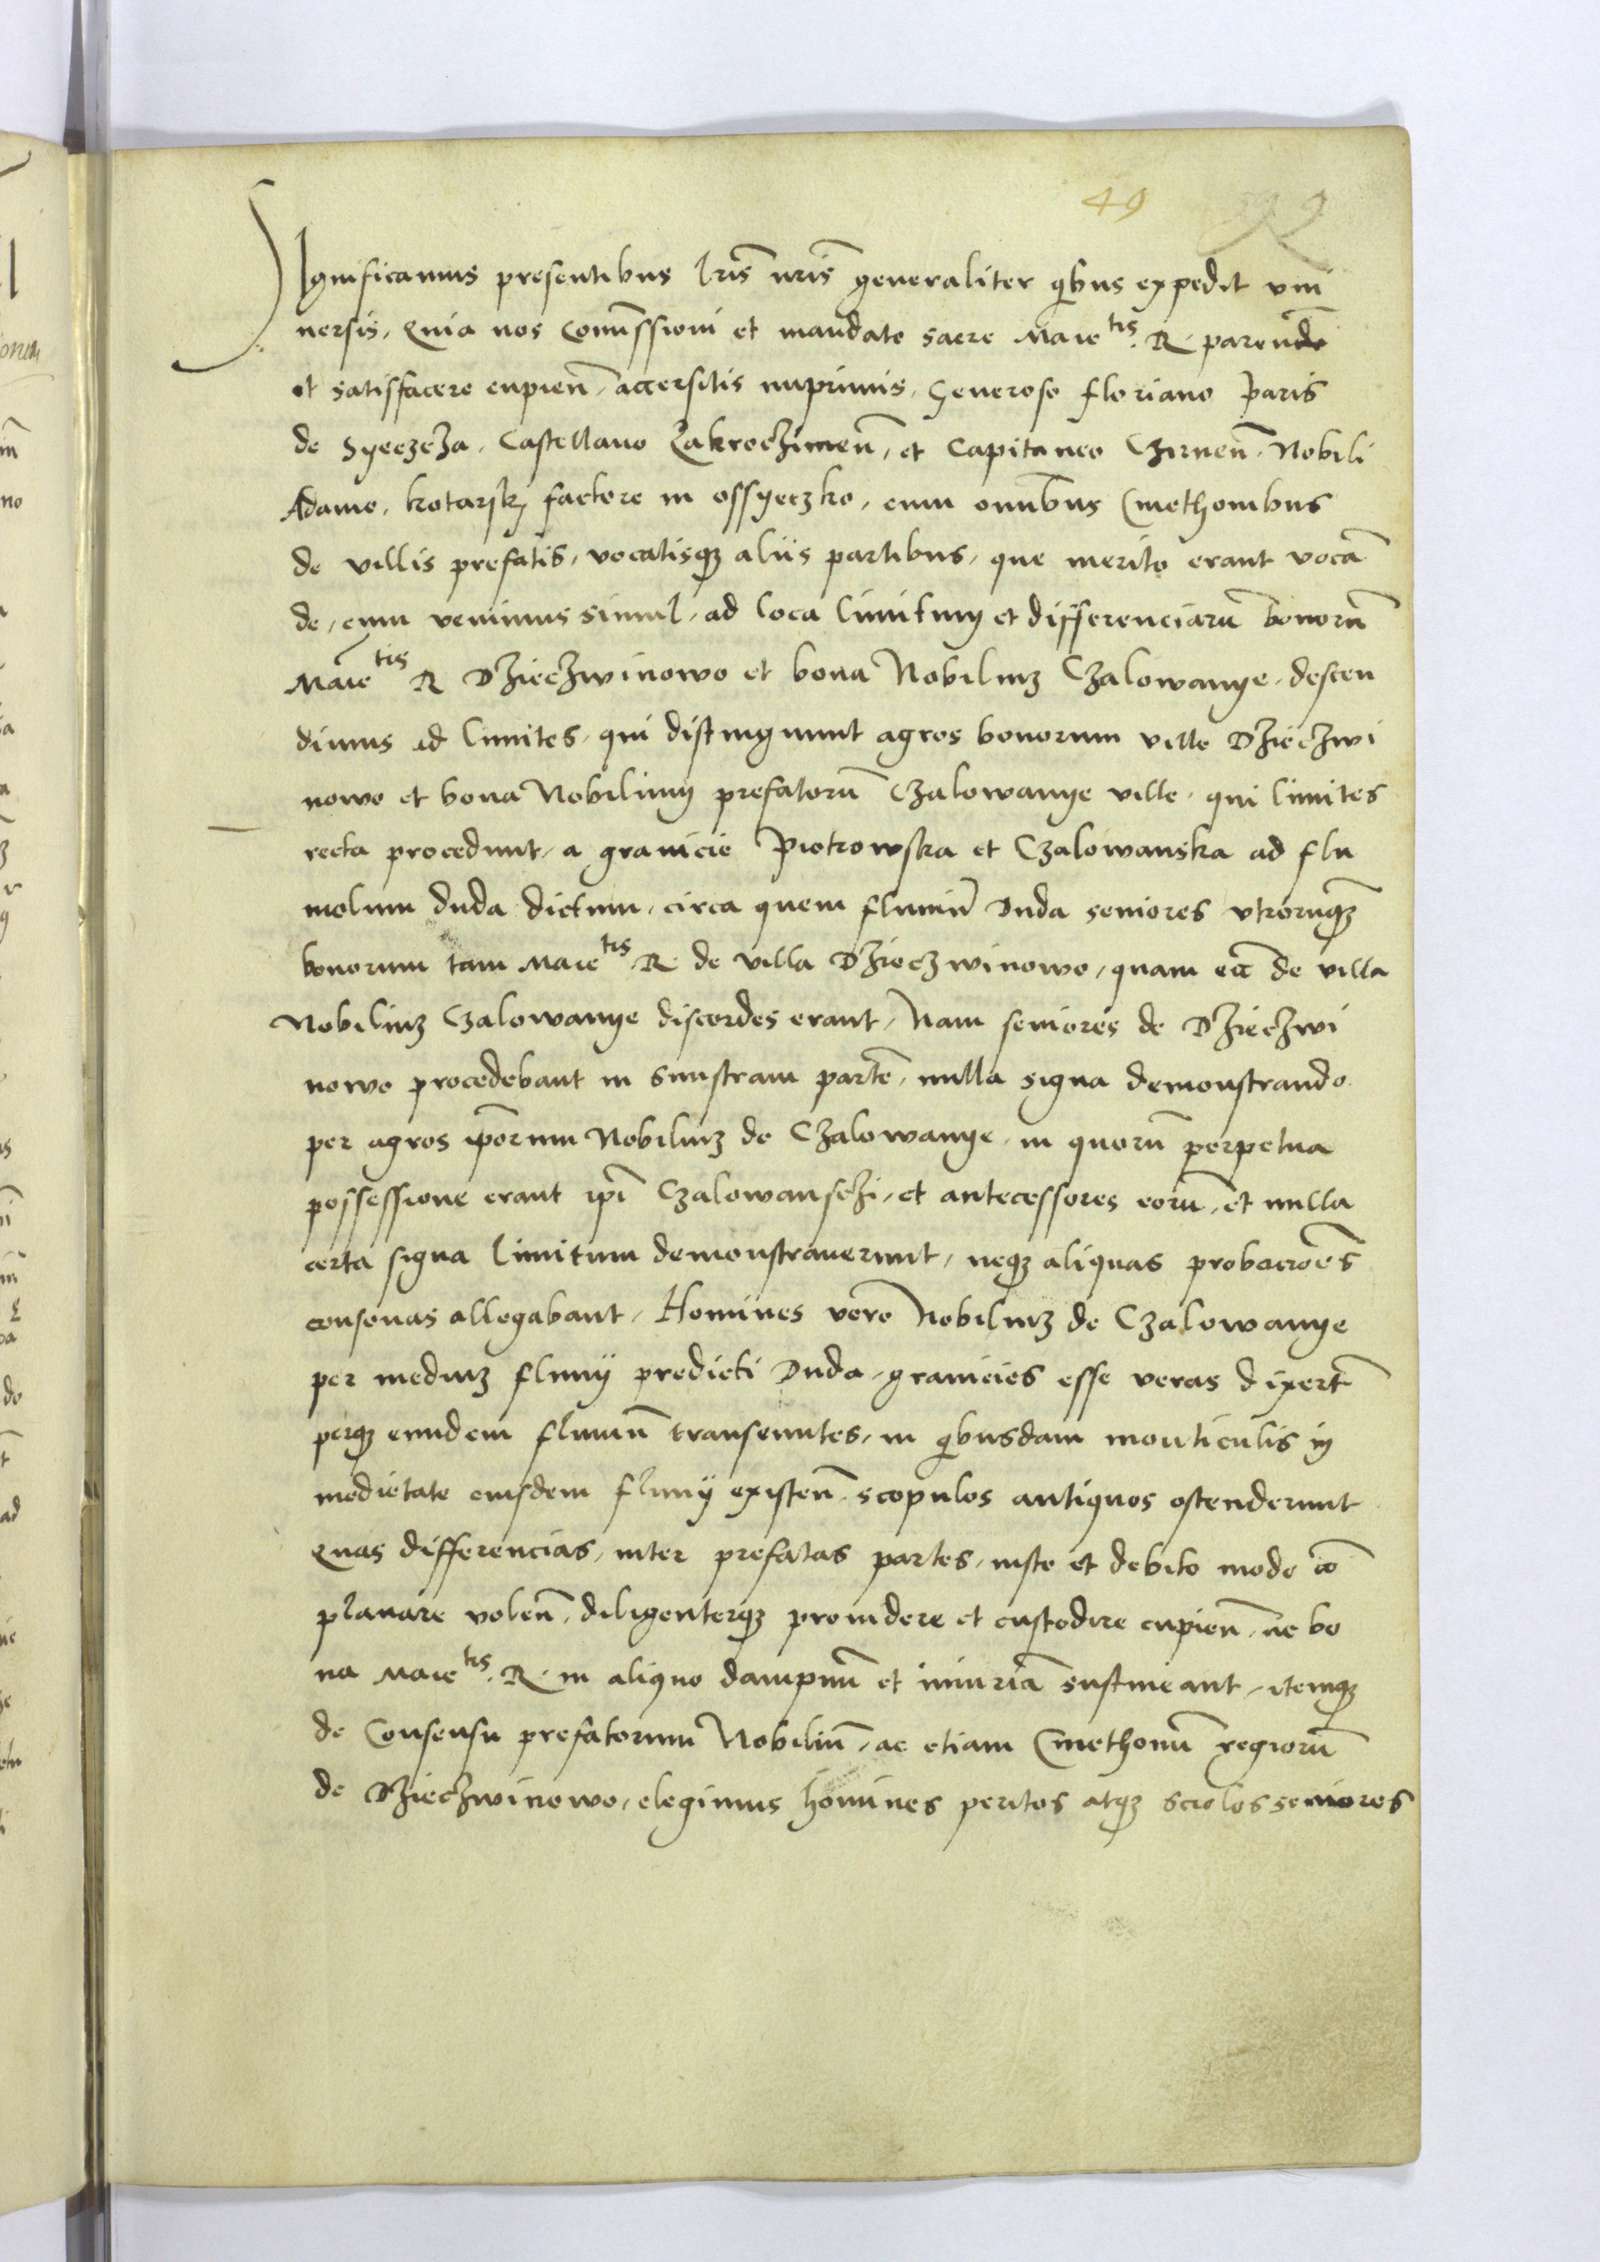 49
Significamus presentibus lris nris generaliter qibus expedit vni
uersis, Quia nos Comissioni et mandato sacre Maietis. R. parendo
et satisfacere cupien, accersitis inprimis, Generoso floriano Paris
de Syeczcza, Castellano Zakroczimen, et Capitaneo Czirnen, Nobili
Adamo, kotarsky factore in ossyeczko, cum omibus Cmethonibus
de villis prefatis, vocatisq aliis partibus, que merito erant voca
de, cum venimus simul, ad loca limitum et differenciaru bonoru
Maietis R Dzieczwinowo et bona Nobilium Czalowanye, descen
dimus ad limites, qui distingunnt agros bonorum ville Dzieczwi
nowo et bona Nobilium prefatoru Czalowanye ville, qui limites
recta procedunt, a granicie Piotrowska et Czalowanska ad flu
molum duda dictum, circa quem flumiu Duda seniores vtrorumq
bonorum tam Maietis. R. de villa Dzieczwinowo, quam eci de villa
Nobilium Czalowanye discordes erant, Nam seniores de Dzieczwi
nowo procedebant in sinistram parte, nulla signa demonstrando
per agros iporum Nobilium de Czalowanye, in quoru perpetua
possessione erant ipi Czalowansczi, et antecessores eoru, et nulla
certa signa limitum demonstrauerunt, neq aliquas probacioes
consonas allegabant, Homines vero Nobilium de Czalowanye
per medium fluuij predicti Duda, granicies esse veras dixert
perq eundem flumiu transeuntes, in qibusdam monticulis in
medietate eiusdem fluuij existen, scopulos antiquos ostenderunt
Quas differencias, inter prefatas partes, iuste et debito modo co
planare volen, diligenterq prouidere et custodire cupien, ne bo
na Maietis. R. in aliquo dampnu et iniuria sustineant, itemq
de Consensu prefatorum Nobiliu, ac etiam Cmethonu regioru
de Dzieczwinowo, elegimus homines peritos atq sciolos seniores